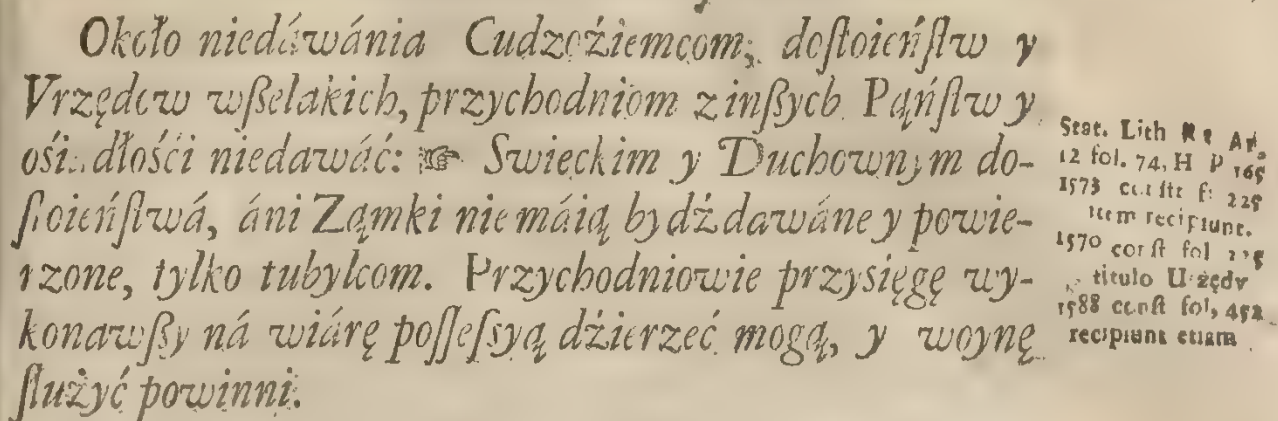 Około niedáwánia Cudzoźiemcom, doſtoieńſtw y
Vrzędow wſzelakich, przychodniom z inſzych Páńſtw y
ośiadłośći niedawáć: ☞ Swieckim y Duchownym do-
ſtoieńſtwá, áni Zamki nie máią bydź dawáne y powie-
rzone, tylko tubylcom. Przychodniowie przyśięgę wy-
konawſzy ná wiárę poſſeſsyą dźierzeć mogą, y woynę
ſłużyć powinni.
Stat. Lith
12 fol. 74, H P 165
1573 conſtt f: 225
item recipiunt.
1570 conſt fol
titulo Urzędy
1588 conſt fol, 452
recipiunt etiam